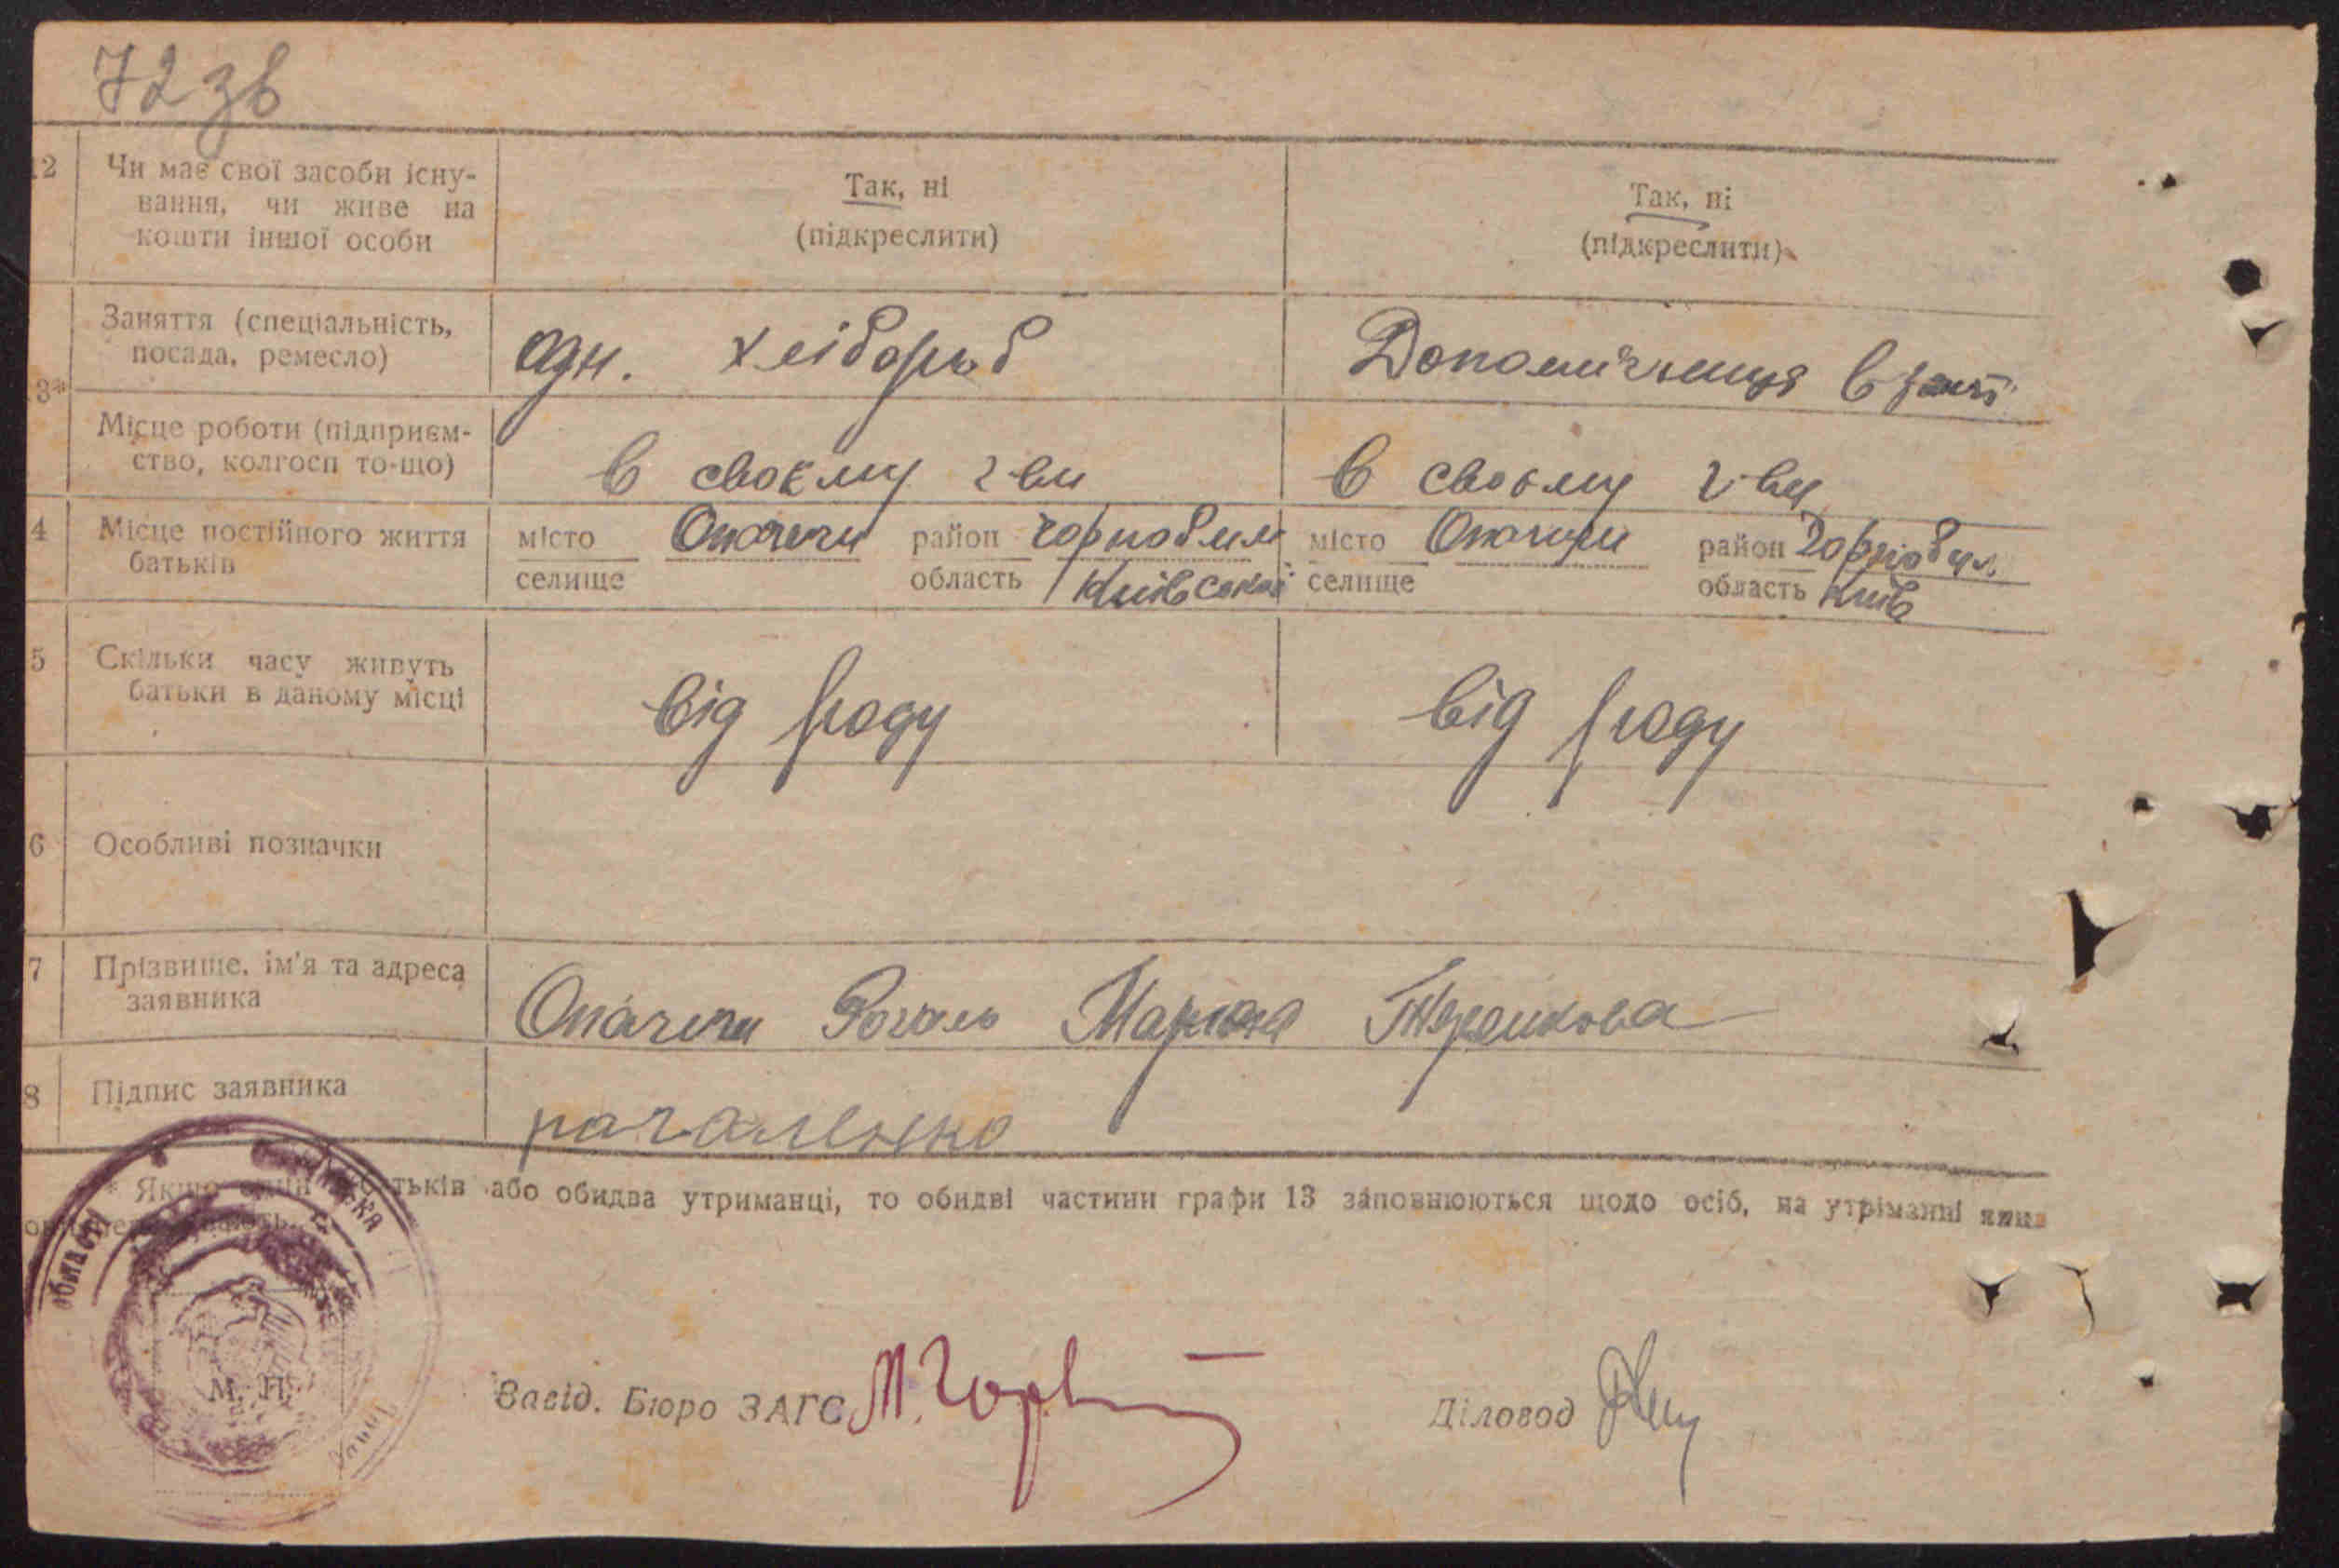 72 зв
12 Чи має свої засоби існу-
вання, чи живе на
кошти іншої особи
Так, ні
(підкреслити)
Так, ні
(підкреслити)
13*
Заняття (спеціальність,
посада, ремесло)
одн. хлібороб
Допомічниця в
Місце роботи (підприєм-
ство, колгосп то-що)
в своєму г-ви
в своєму г-ви
4 Місце постійного життя
батьків
місто Опачичи район Чорнобил
селище область Київської
місто Опачичи район Чорнобил.
селище область Київ
5 Скільки часу живуть
батьки в даному місці
від роду
від роду
6 Особливі позначки
7 Прізвище, ім'я та адреса
заявника
Опачичи Рогаль Марина
8 Підпис заявника
рагаленко
* Якщо один з батьків або обидва утриманці, то обидві частини графи 13 заповнюються щодо осіб, на утріманні яких
області
М. П.
Завід. Бюро ЗАГС
Діловод